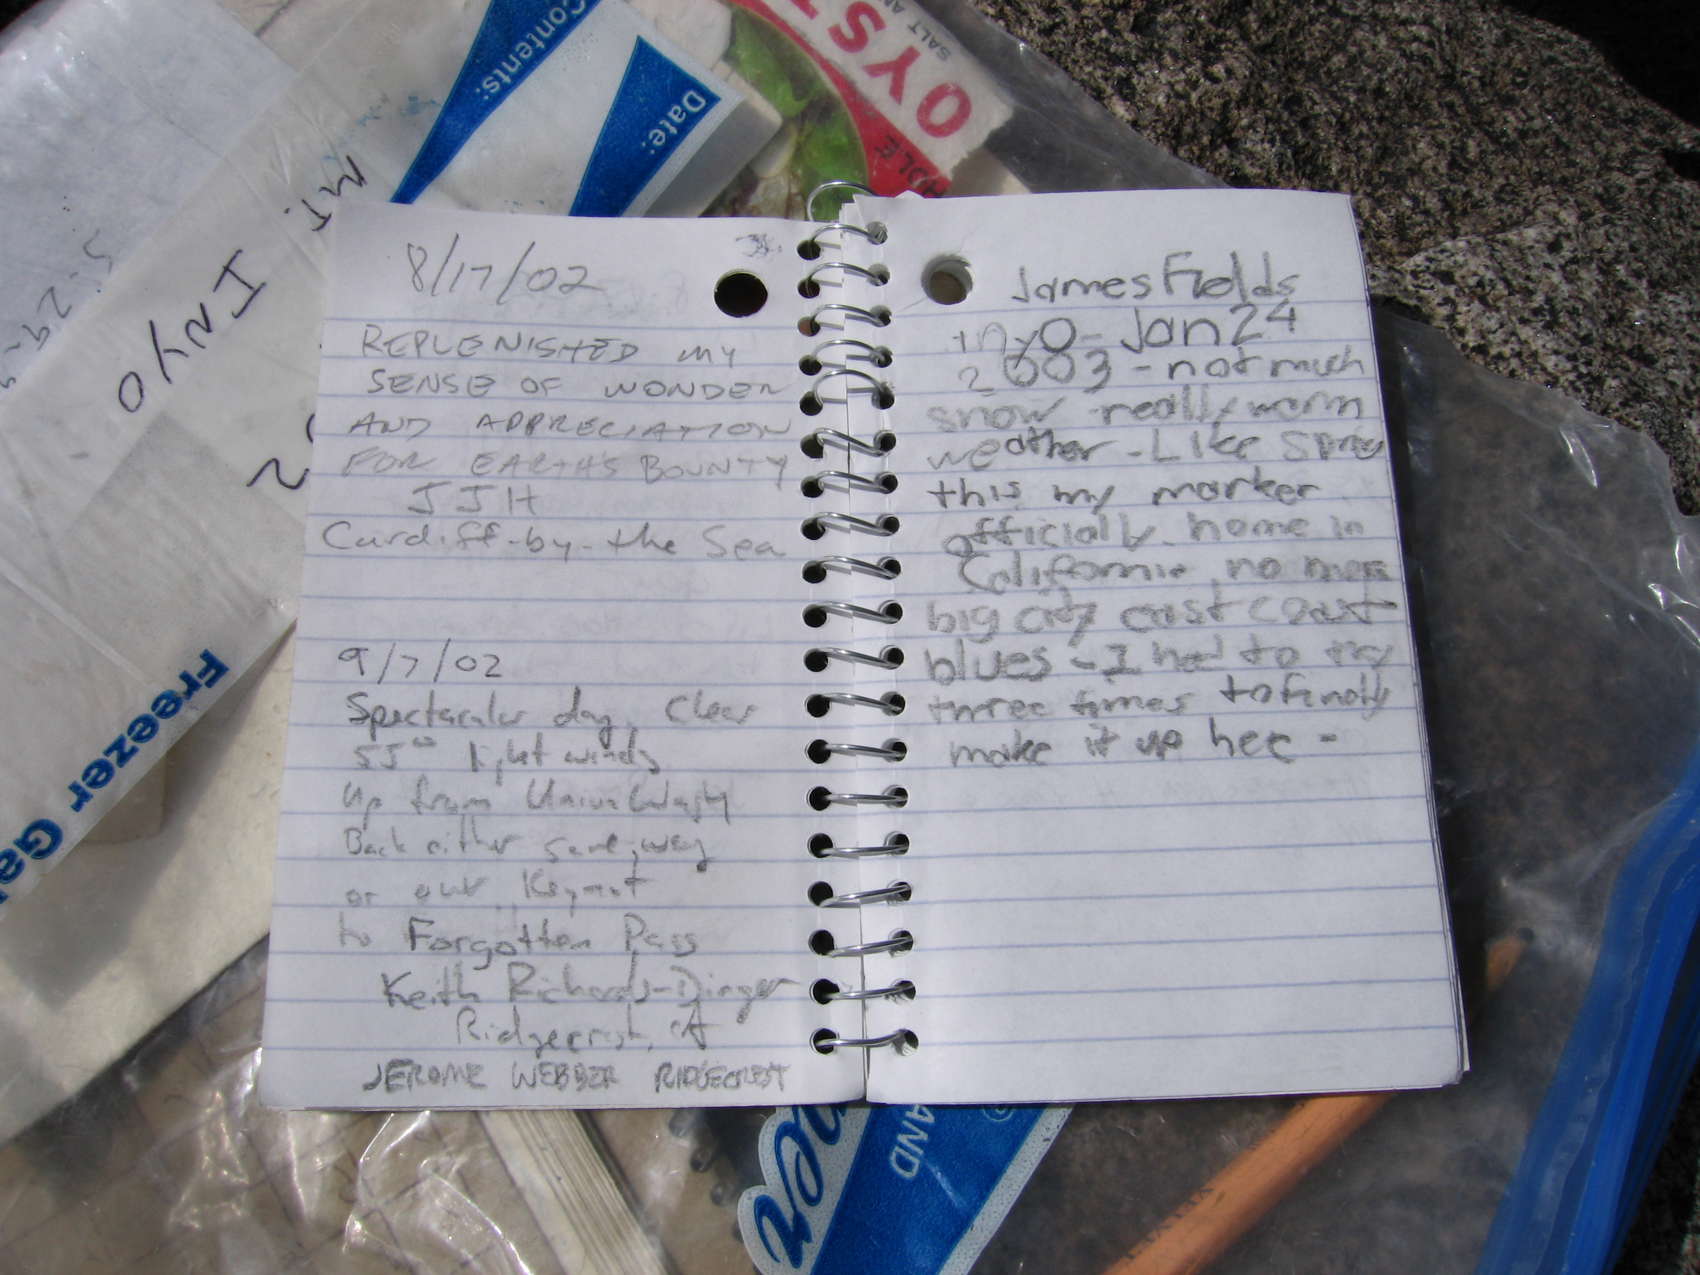 OYST
SALT AN
Contents:
Date:
MT.
INYO
Freezer Ga
8/17/02
REPLENISHED MY
SENSE OF WONDER
AND APPRECIATION
FOR EARTH'S BOUNTY
JJH
Cardiff-by-the Sea
9/7/02
Spectacular day, Clear
55° light winds
Up from Union Wash
Back either same way
or over Keynot
to Forgotten Pass
Keith Richards-Dinger
Ridgecrest, CA
JEROME WEBBER RIDGECREST
James Fields
inyo - Jan 24
2003 - not much
snow - really warm
weather - Like Spring
this my marker
officially home in
California no more
big city east coast
blues - I had to try
three times to finally
make it up here -
AND